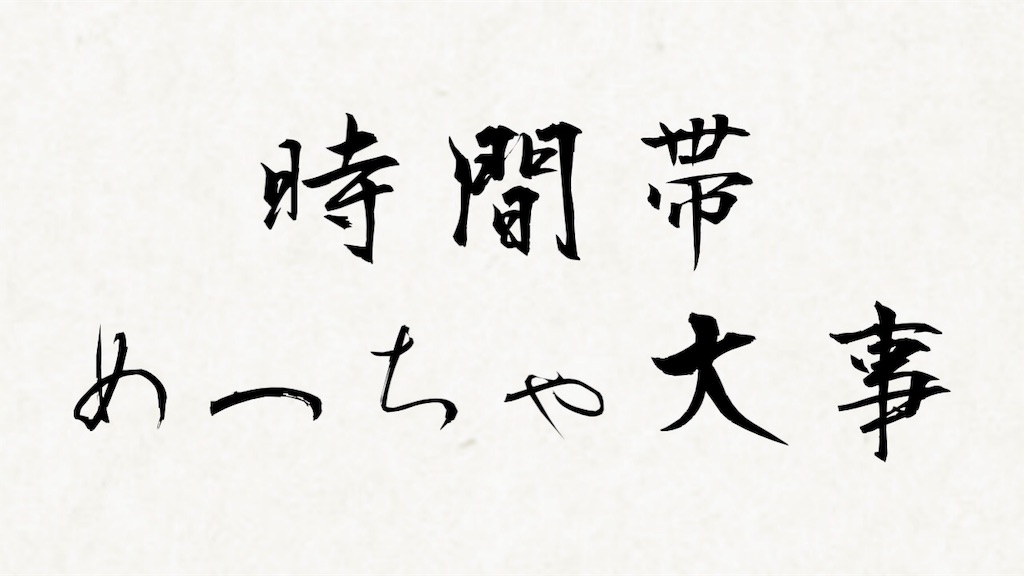 時間帯
めっちゃ大事